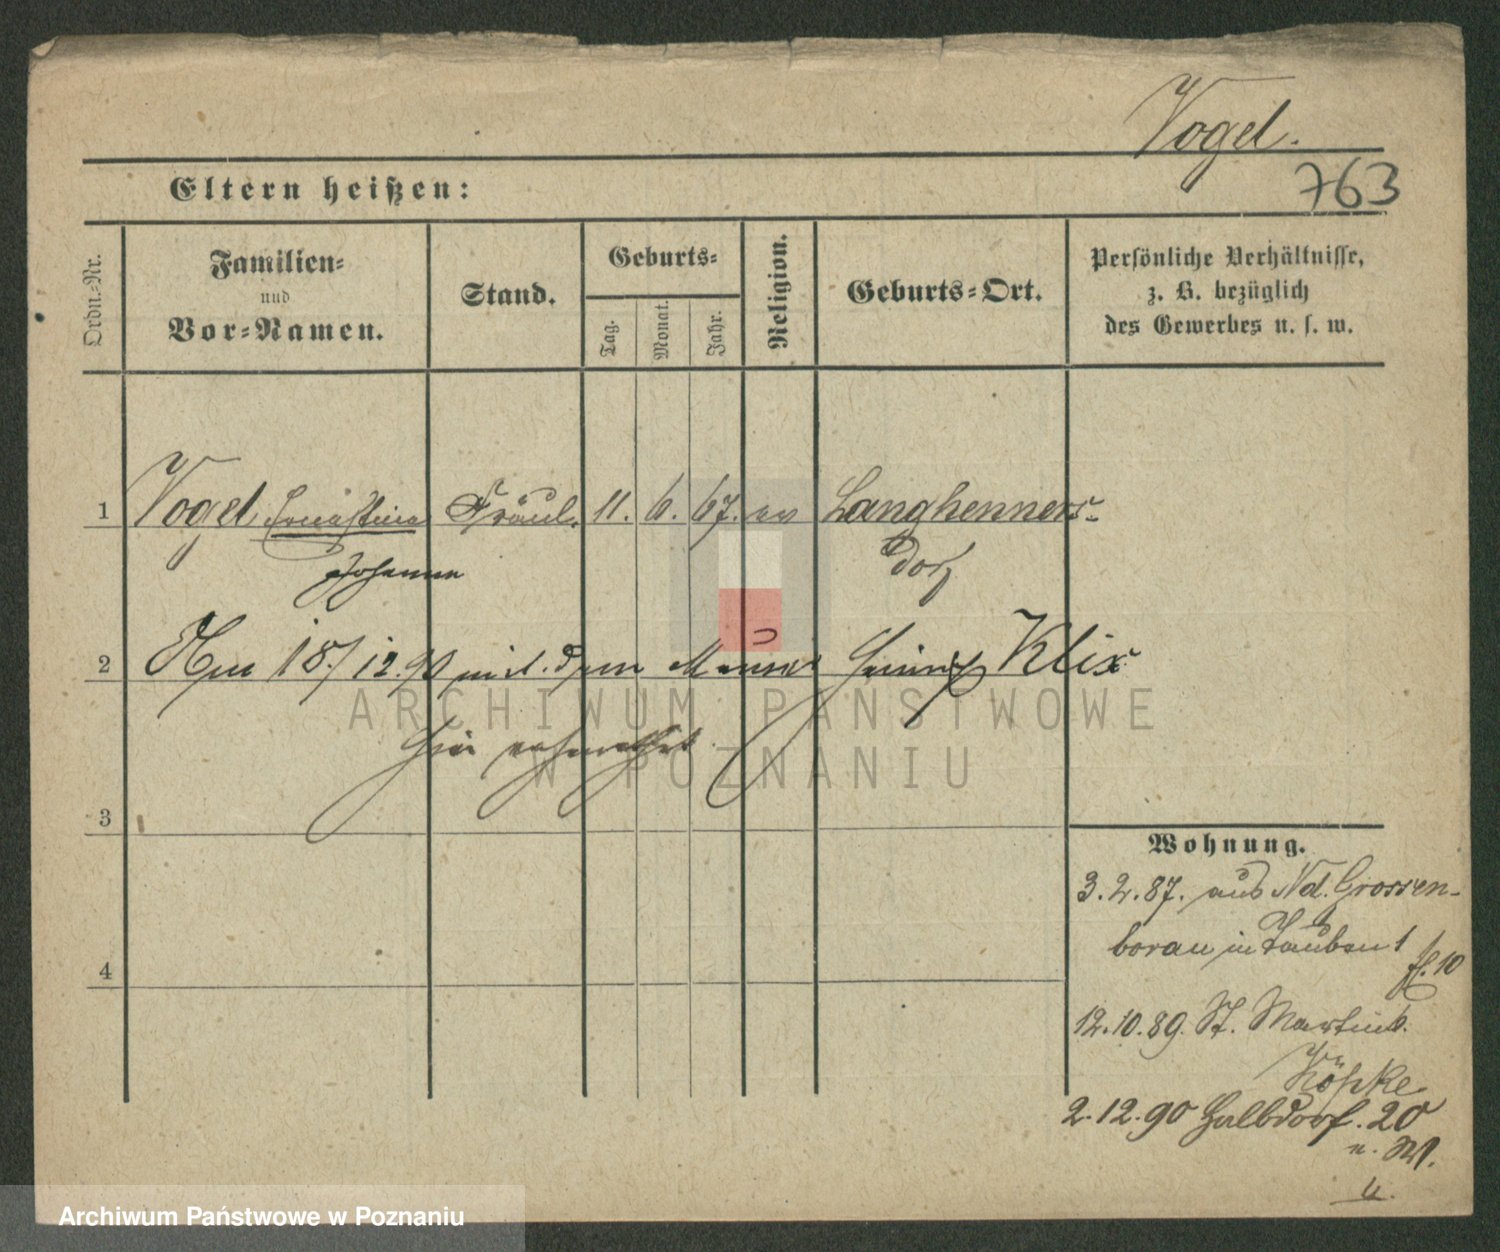 Vogel.
763
Eltern heißen:
Ordn.-Nr.
Familien-
und
Vor-Namen.
Stand.
Geburts-
Tag.
Monat.
Jahr.
Religion.
Geburts-Ort.
Persönliche Verhältnisse,
z. B. bezüglich
des Gewerbes u. s. w.
1 Vogel Ernestine Fräul. 11. 6. 67. ev Langhenners-
Johanne dorf
2 Am 18/12.90 mit dem Maurer Heinrich Klix
hier verheirathet
3
4
Wohnung.
3.2.87. aus Nd. Grossen-
borau in Tauben 1
12.10.89. St. Martin 6.
Köpke
2.12.90 Halbdorf. 20
ARCHIWUM PAŃSTWOWE
W POZNANIU
Archiwum Państwowe w Poznaniu